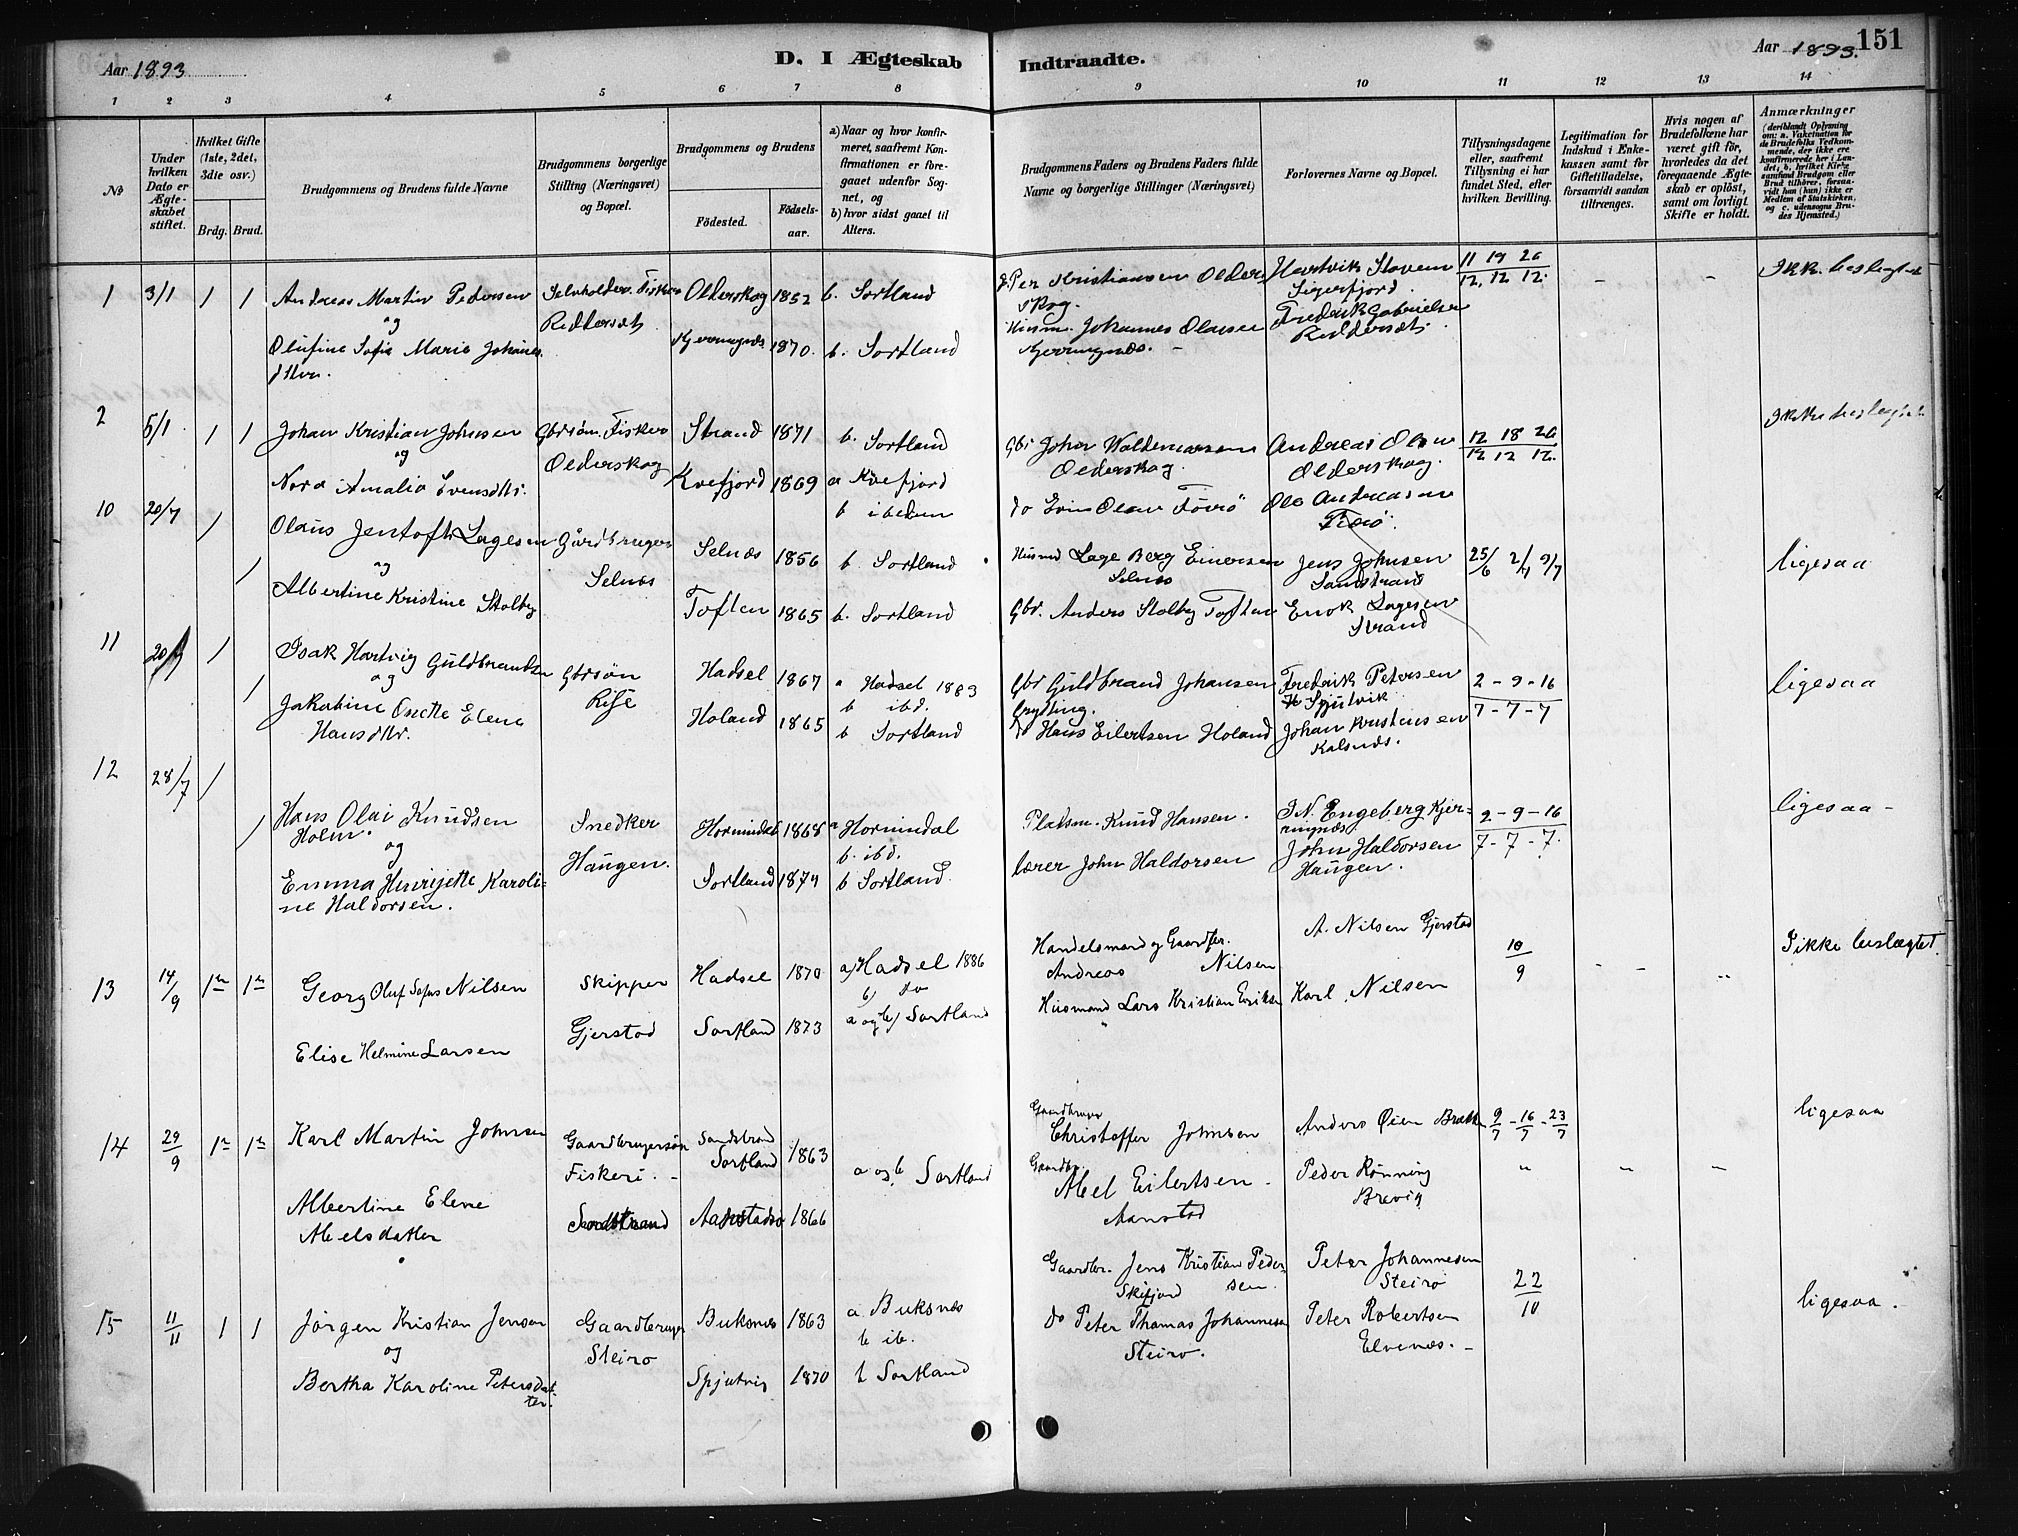 Aar 1893
D. I Ægteskab
Indtraadte.
Aar 1893.
151
1 2 3 4 5 6 7 8 9 10 11 12 13 14
No
Under hvilken Dato er Ægteskabet stiftet.
Hvilket Gifte (1ste, 2det, 3die osv.)
Brdg. Brud.
Brudgommens og Brudens fulde Navne
Brudgommens borgerlige Stilling (Næringsvei) og Bopæl.
Brudgommens og Brudens
Födested.
Födselsaar.
a) Naar og hvor konfirmeret, saafremt Konfirmationen er foregaaet udenfor Sognet, og
b) hvor sidst gaaet til Alters.
Brudgommens Faders og Brudens Faders fulde Navne og borgerlige Stillinger (Næringsvei)
Forlovernes Navne og Bopæl.
Tillysningsdagene eller, saafremt Tillysning ei har fundet Sted, efter hvilken Bevilling.
Legitimation for Indskud i Enkekassen samt for Giftetilladelse, forsaavidt saadan tiltrænges.
Hvis nogen af Brudefolkene har været gift för, hvorledes da det foregaaende Ægteskab er oplöst, samt om lovligt Skifte er holdt.
Anmærkninger
(deriblandt Oplysning om: a. Vakcination for de Brudefolks Vedkommende, der ikke ere konfirmerede her i Landet, b. hvilket Kirkesamfund Brudgom eller Brud tilhörer, forsaavidt han (hun) ikke er Medlem af Statskirken, og c. udensogns Brudes Hjemsted.)
1 3/1 1 1 Andreas Martin Pedersen Selveholder. Fisker Olderskog 1852 b. Sortland Per Kristiansen Olderskog. Hartvik Stovem Sigerfjord 11 19 26
12. 12. 12. Ikke beslegtet
og
Olufine Sofie Marie Johannesdtter. Kjerringnes 1870. b. Sortland Husm. Johannes Olausen Kjerringnes. Frederik Gabrielsen
2 5/1 1 1 Johan Kristian Johnsen Gbrsön. Fisker Olderskog Strand 1871 b. Sortland Gbr. Johan Waldemarsen Olderskog. Andreas Olsen Olderskog. 12 18 26
12 12 12. Ikke beslegtet
og
Nora Amalia Evensdtr. Kvefjord 1869 a Kvefjord
b ibidem do Even Olsen Ole Andreasen
10 20/7 1 1 Olaus Jentoft Lagesen Gårdbruger Selnes Selnæs 1856 b. Sortland Husmd Lage Berg Einersen Selnes Jens Johnsen Sandstrand 25/6 2/7 9/7 ligesaa
og
Albertine Kristine Stolberg Toften 1865 b. Sortland Gbr. Anders Stolberg Toften Enok Lagesen Strand
11 20/7 1 1 Isak Hartvig Guldbrandsen Gbrsön Rise Hadsel 1867 a Hadsel 1883
b ibd. Gbr Guldbrand Johansen Frydling. Frederik Petersen Spjutvik 2 - 9 - 16
7 - 7 - 7 ligesaa
og
Jakobine Anette Elene Hansdtr. Holand 1865 b Sortland do Hans Eilertsen Holand Johan Kristensen Kalsnes.
12 28/7 1 1 Hans Olai Knudsen Holm. Snedker Haugen. Hornindal 1868 a Hornindal
b. ibd. Pladsm. Knud Hansen. I. N. Engeberg Kjerringnes 2 - 9 - 16
7 - 7 - 7. ligesaa -
og
Emma Henrijette Karoline Haldorsen. Sortland 1874 b Sortland. lærer John Haldorsen John Haldorsen Haugen.
13 14/9 1ste 1ste Georg Oluf Sofus Nilsen Skipper Gjerstad Hadsel 1870 a) Hadsel 1886
b) do Handelsmand og Gaardbr. Andreas Nilsen A. Nilsen Gjerstad 10/9 I ikke beslægtet.
Elise Helmine Larsen Sortland 1873 a og b) Sortland Husmand Lars Kristian Eriksen Karl Nilsen
14 29/9 1ste 1ste Karl Martin Johnsen Gaardbrugersøn Fiskeri. - Sandstrand Sortland 1863 a og b Sortland Gaardbruger Christoffer Johnsen Anders Øien Brække 9/7 - 16/7 - 23/7 ligesaa
Albertine Elene Abelsdatter Sandstrand Aanstad 1866 Gaardbr. Abel Eilertsen. Aanstad Peder Rønning Brevig
15 11/11 1 1 Jørgen Kristian Jensen Gaardbruger Steiro Buksnes 1863 a Buksnæs
b ib. Gaardbr. Jens Kristian Pedersen. Skifjord Peter Johannesen Steiro 22/10 ligesaa.
og
Bertha Karoline Petersdatter. Spjutvig 1870 b Sortland do Peter Thomas Johannesen Steiro. Peter Robertsen Elvenæs. -